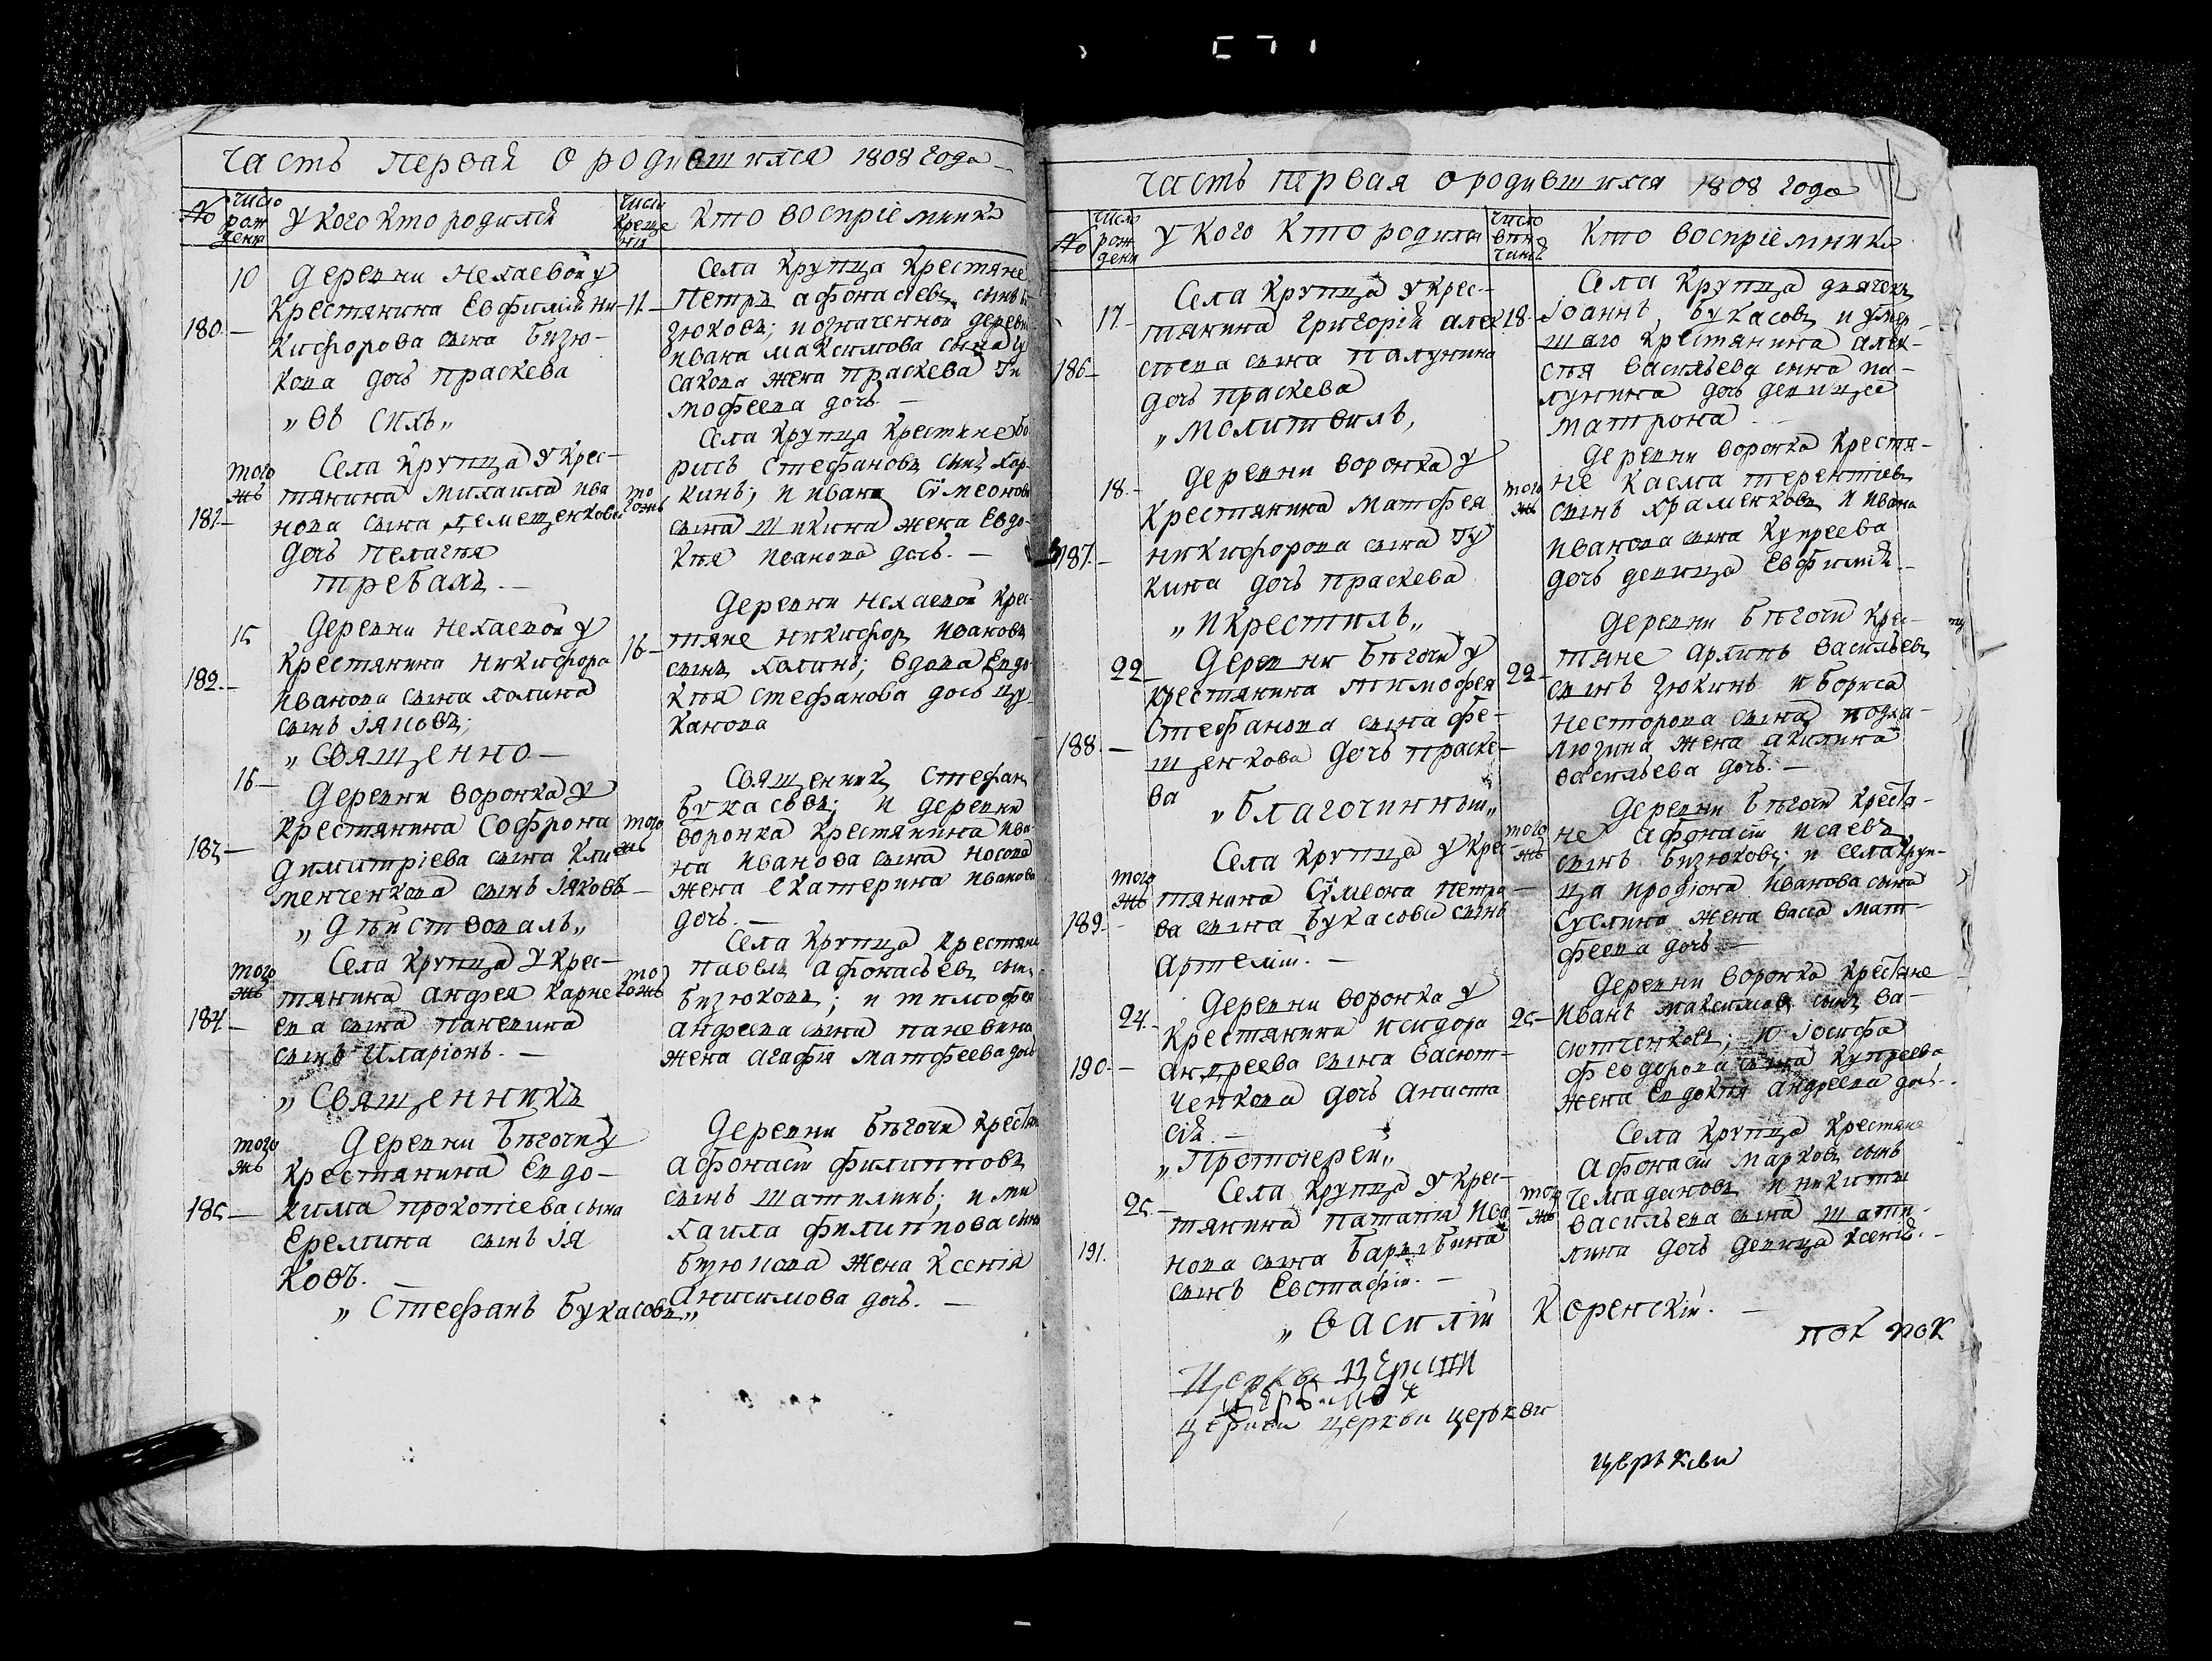 Часть первая о родившихся 1808 года
№
число рождения
у кого кто родился
число крещения
кто воспріемники
10
180.
Деревни Нехаевой у
крестянина Евфимія Ни
кифорова сына Бизю-
кова дочь Праскева
„Въ сихъ„
11
Села Крупца крестяне
Петръ Афонасіевъ сынъ
зюковъ; и означенной деревни
Ивана Максимова сына
сакова жена Праскева Ти
мофеева дочь. —
того жъ
181
Села Крупца у крес-
тянина Михаила Ива
нова сына
дочь Пелагея
требахъ. —
того жъ
Села Крупца крестяне Бо
рисъ Стефановъ сынъ Хор-
кинъ; и Ивана Сѵмеонова
сына Шикина жена Евдо-
кѣя Иванова дочь. —
15
182.
Деревни Нехаевой у
крестянина Никифора
Иванова сына Холина
сынъ Іяковъ;
„Священно—
16
Деревни Нехаевой крес
тяне Никифоръ Ивановъ
сынъ Холинъ; вдова Евдо
кѣя Стефанова дочь Цу
канова
16
183
Деревни Воронка у
крестянина Софрона
Димитріева сына Кли
менченкова сынъ Іяковъ
„дѣйствовалъ„
того жъ
Священникъ Стефанъ
Букасовъ; и деревни
Воронка крестянина Ива
на Иванова сына Носова
жена Екатерина Иванова
дочь. —
того жъ
184
Села Крупца у крес-
тянина Андрея Карне
ева сына Паневина
сынъ Иларіонъ. —
„Священникъ
того жъ
Села Крупца крестяне
Павелъ Афонасьевъ сынъ
Бизюковъ; и Тимофея
Андреева сына Паневина
жена Агафія Матфеева дочь
того жъ
185
Деревни Бѣгочи у
крестянина Евдо-
кима Прокопіева сына
Еремина сынъ Ія
ковъ. —
„Стефанъ Букасовъ„
Деревни Бѣгочи крестяне
Афонасій Филипповъ
сынъ Шатилинъ; и Ми
хаила Филиппова сына
Бизюкова жена Ксенія
Анисимова дочь. —
Часть первая о родившихся 1808 года
№
число рождения
у кого кто родился
число
кто воспріемники
17
186
Села Крупца у крес-
тянина Григорія Алек
сѣева сына Палунина
дочь Праскева
„молитвилъ,
18
Села Крупца дьячекъ
Іоаннъ Букасовъ и умер-
шаго крестянина Алек-
сѣя Васильева сына Па-
лунина дочь девица
Матрона
18
187.
Деревни Воронка у
крестянина Матфея
Никифорова сына Гу
кина дочь Праскева
„и крестилъ„
того жъ
Деревни Воронка крестя-
не Касма Терентіевъ
сынъ Храменковъ и Ивана
Иванова сына Купреева
дочь девица Евфимія
22
188.
Деревни Бѣгочи у
крестянина Тимофея
Стефанова сына Фе-
щенкова дочь Праске-
ва
„благочинный„
22
Деревни Бѣгочи крес-
тяне Архипъ Васильевъ
сынъ Зюкинъ и Бориса
Несторова сына Подха-
люзина жена Акилина
Васильева дочь. —
того жъ
189.
Села Крупца у крес-
тянина Сѵмеона Петро
ва сына Букасова сынъ
Артемій. —
того жъ
Деревни Бѣгочи крестя-
не Афонасій Исаевъ
сынъ Бизюковъ; и села Круп-
ца Продіона Иванова сына
Суслина жена Васса Мат-
феева дочь —
24
190.
Деревни Воронка у
крестянина Исидора
Андреева сына Васют-
ченкова дочь Анаста
сія. —
„Протоіерей„
25
Деревни Воронка крестяне
Иванъ Максимовъ сынъ Ва-
сютченковъ; и Іосифа
Феодорова сына Купреева
жена Евдокѣя Андреева дочь.
25
191.
Села Крупца у крес-
тянина Патапія Ива
нова сына Барыбина
сынъ Евстафій. —
того жъ
Села Крупца крестяне
Афонасій Марковъ сынъ
Чемадановъ и Никиты
Васильева сына Шати-
лина дочь девица Ксенія. —
„Василій Коренскій. —
пок пок
церкви церкви церкви
церькви